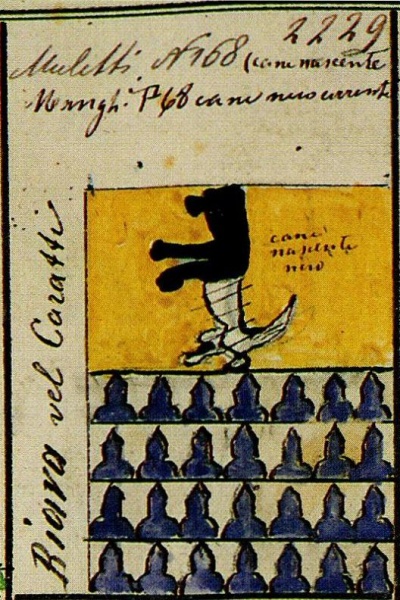 2229
Muletti N 168 (cane nascente
Menoch. P 68 cane nero currente
cane
nascente
nero
Biava vel Caratti